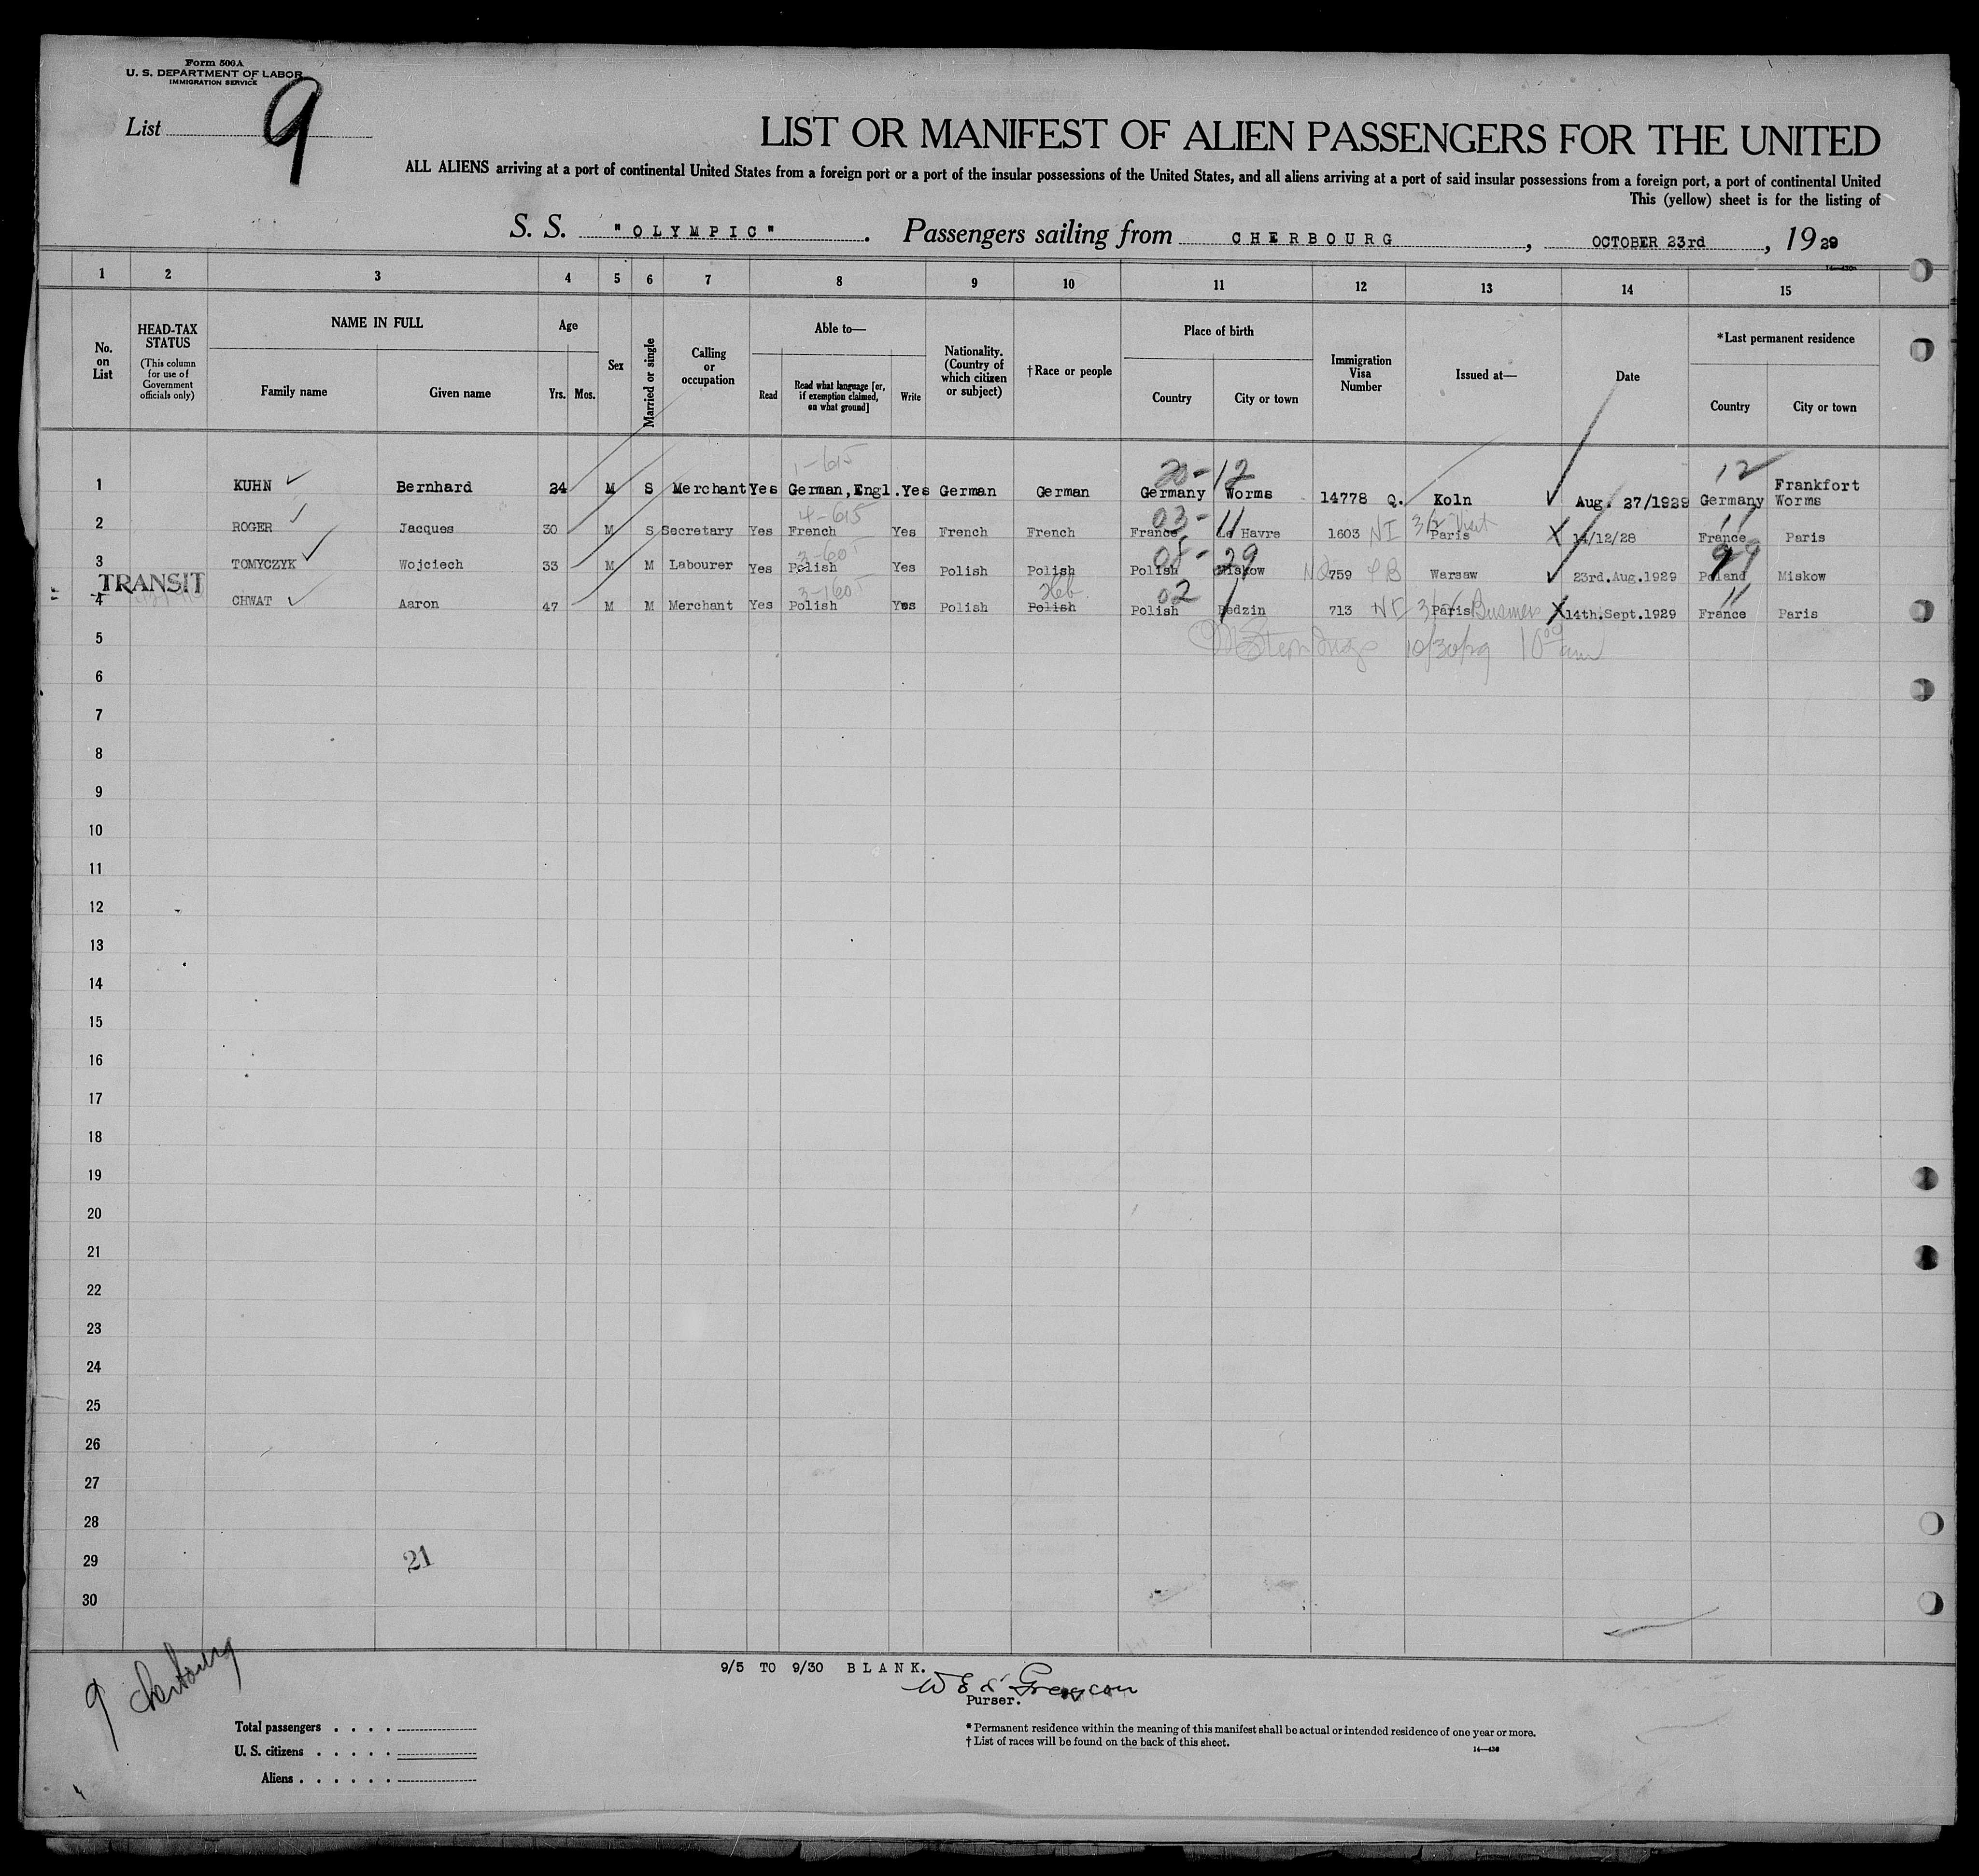 Form 500A
U. S. DEPARTMENT OF LABOR
IMMIGRATION SERVICE
List 9
LIST OR MANIFEST OF ALIEN PASSENGERS FOR THE UNITED
ALL ALIENS arriving at a port of continental United States from a foreign port or a port of the insular possessions of the United States, and all aliens arriving at a port of said insular possessions from a foreign port, a port of continental United
This (yellow) sheet is for the listing of
S. S. "OLYMPIC". Passengers sailing from CHERBOURG, OCTOBER 23rd, 1929
1 2 3 4 5 6 7 8 9 10 11 12 13 14 15
No. on List
HEAD-TAX STATUS (This column for use of Government officials only)
NAME IN FULL
Family name Given name
Age
Yrs. Mos.
Sex
Married or single
Calling or occupation
Able to—
Read Read what language [or, if exemption claimed, on what ground] Write
Nationality. (Country of which citizen or subject)
†Race or people
Place of birth
Country City or town
Immigration Visa Number
Issued at—
Date
*Last permanent residence
Country City or town
1-615 20-12 12
1 KUHN Bernhard 24 M S Merchant Yes German, Engl. Yes German German Germany Worms 14778 Q. Koln Aug. 27/1929 Germany Frankfort Worms
4-615 03-11 11
2 ROGER Jacques 30 M S Secretary Yes French Yes French French France Le Havre 1603 NI Paris Visit 14/12/28 France Paris
3-605 05-29 99
3 TOMYCZYK Wojciech 33 M M Labourer Yes Polish Yes Polish Polish Polish Miskow 759 Warsaw 23rd.Aug.1929 Poland Miskow
TRANSIT 3-1605 Heb. 02 11
4 CHWAT Aaron 47 M M Merchant Yes Polish Yes Polish Polish Polish Bedzin 713 NI Paris Business 14th.Sept.1929 France Paris
5 10/30/29 10 00 am
6
7
8
9
10
11
12
13
14
15
16
17
18
19
20
21
22
23
24
25
26
27
28
29 21
30
9 Cherbourg
9/5 TO 9/30 BLANK.
Purser.
Total passengers
U. S. citizens
Aliens
* Permanent residence within the meaning of this manifest shall be actual or intended residence of one year or more.
† List of races will be found on the back of this sheet.
14—430